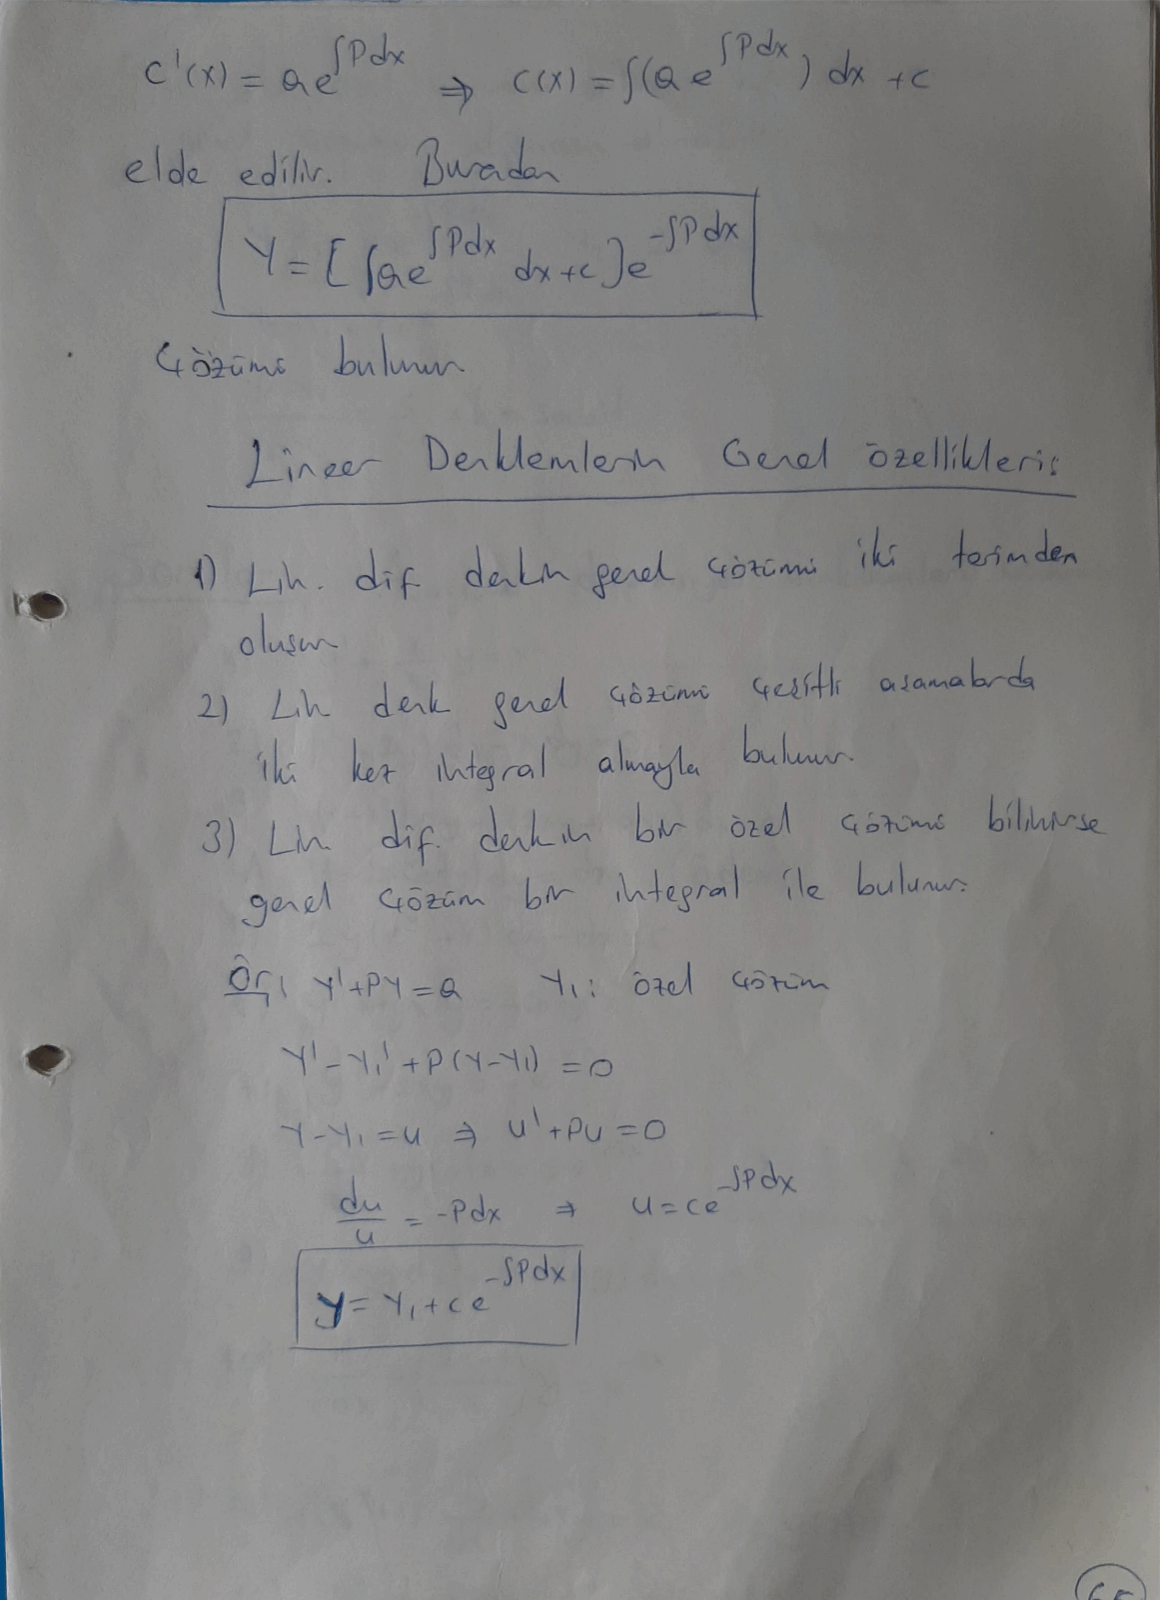 c'(x) = Qe^{∫Pdx} ⇒ c(x) = ∫(Qe^{∫Pdx}) dx + c
elde edilir. Buradan
Y = [∫Qe^{∫Pdx} dx + c]e^{-∫Pdx}
çözümü bulunur
Lineer Denklemlerin Genel özellikleri:
1) Lin. dif. denkin genel çözümü iki terimden
oluşur
2) Lin denk genel çözümü çeşitli aşamalarda
iki kez integral almayla bulunur.
3) Lin. dif. denkin bir özel çözümü bilinirse
genel çözüm bir integral ile bulunur.
Ör: Y'+PY=Q Y₁: özel çözüm
Y'-Y₁'+P(Y-Y₁)=0
Y-Y₁=u ⇒ u'+Pu=0
du/u = -Pdx ⇒ u=ce^{-∫Pdx}
y=Y₁+ce^{-∫Pdx}